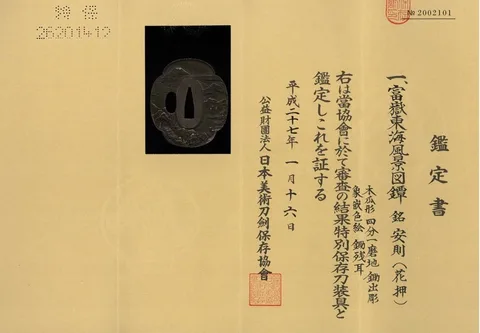 特保
26201412
№ 2002101
鑑定書
一、富嶽東海風景図鐔 銘 安則（花押）
木瓜形 四分一磨地 鋤出彫
象嵌色絵 鋤残耳
右は當協會に於て審査の結果特別保存刀装具と
鑑定しこれを証する
平成二十七年 一月十六日
公益財團法人 日本美術刀劍保存協會